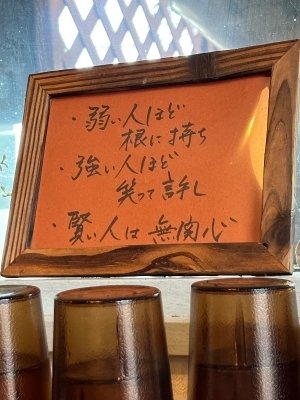 ・弱い人ほど
根に持ち
・強い人ほど
笑って許し
・賢い人は 無関心